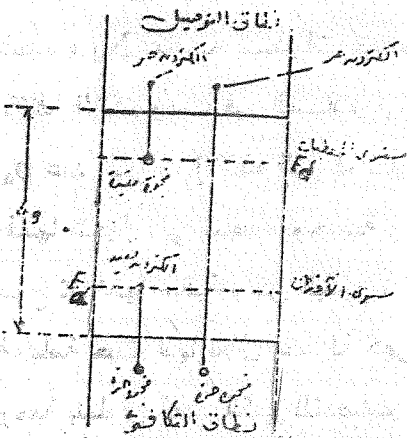 نطاق التوصيل
الكترون حر
الكترون حر
مستوى المعطيات
Ed
فجوة مقيدة
الكترون مقيد
Ea
فجوة حرة
فجوة حرة
نطاق التكافؤ